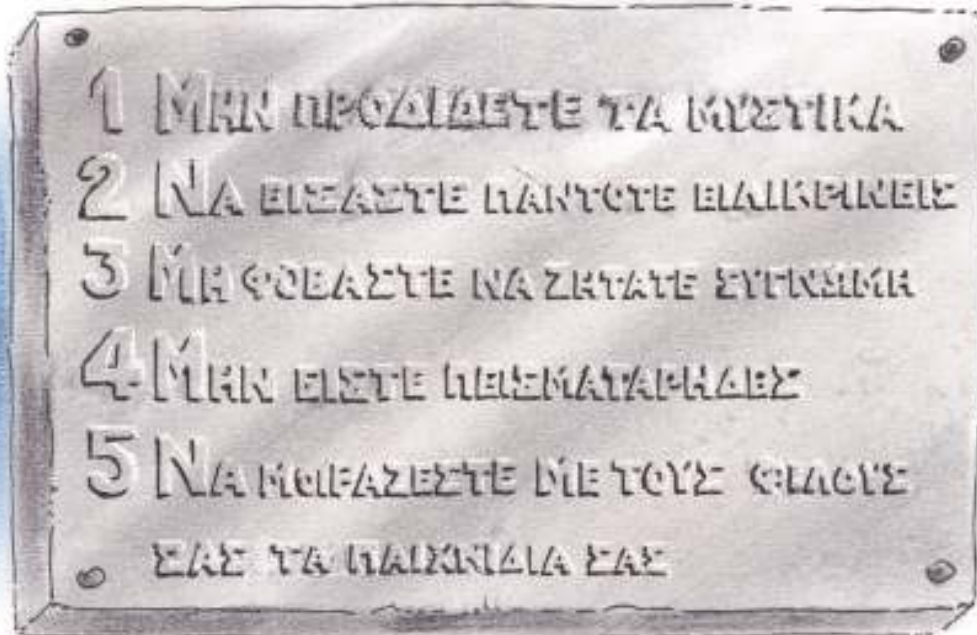 1 ΜΗΝ ΠΡΟΔΙΔΕΤΕ ΤΑ ΜΥΣΤΙΚΑ
2 ΝΑ ΕΙΣΑΣΤΕ ΠΑΝΤΟΤΕ ΕΙΛΙΚΡΙΝΕΙΣ
3 ΜΗ ΦΟΒΑΣΤΕ ΝΑ ΖΗΤΑΤΕ ΣΥΓΝΩΜΗ
4 ΜΗΝ ΕΙΣΤΕ ΠΕΙΣΜΑΤΑΡΗΔΕΣ
5 ΝΑ ΜΟΙΡΑΖΕΣΤΕ ΜΕ ΤΟΥΣ ΦΙΛΟΥΣ
ΣΑΣ ΤΑ ΠΑΙΧΝΙΔΙΑ ΣΑΣ